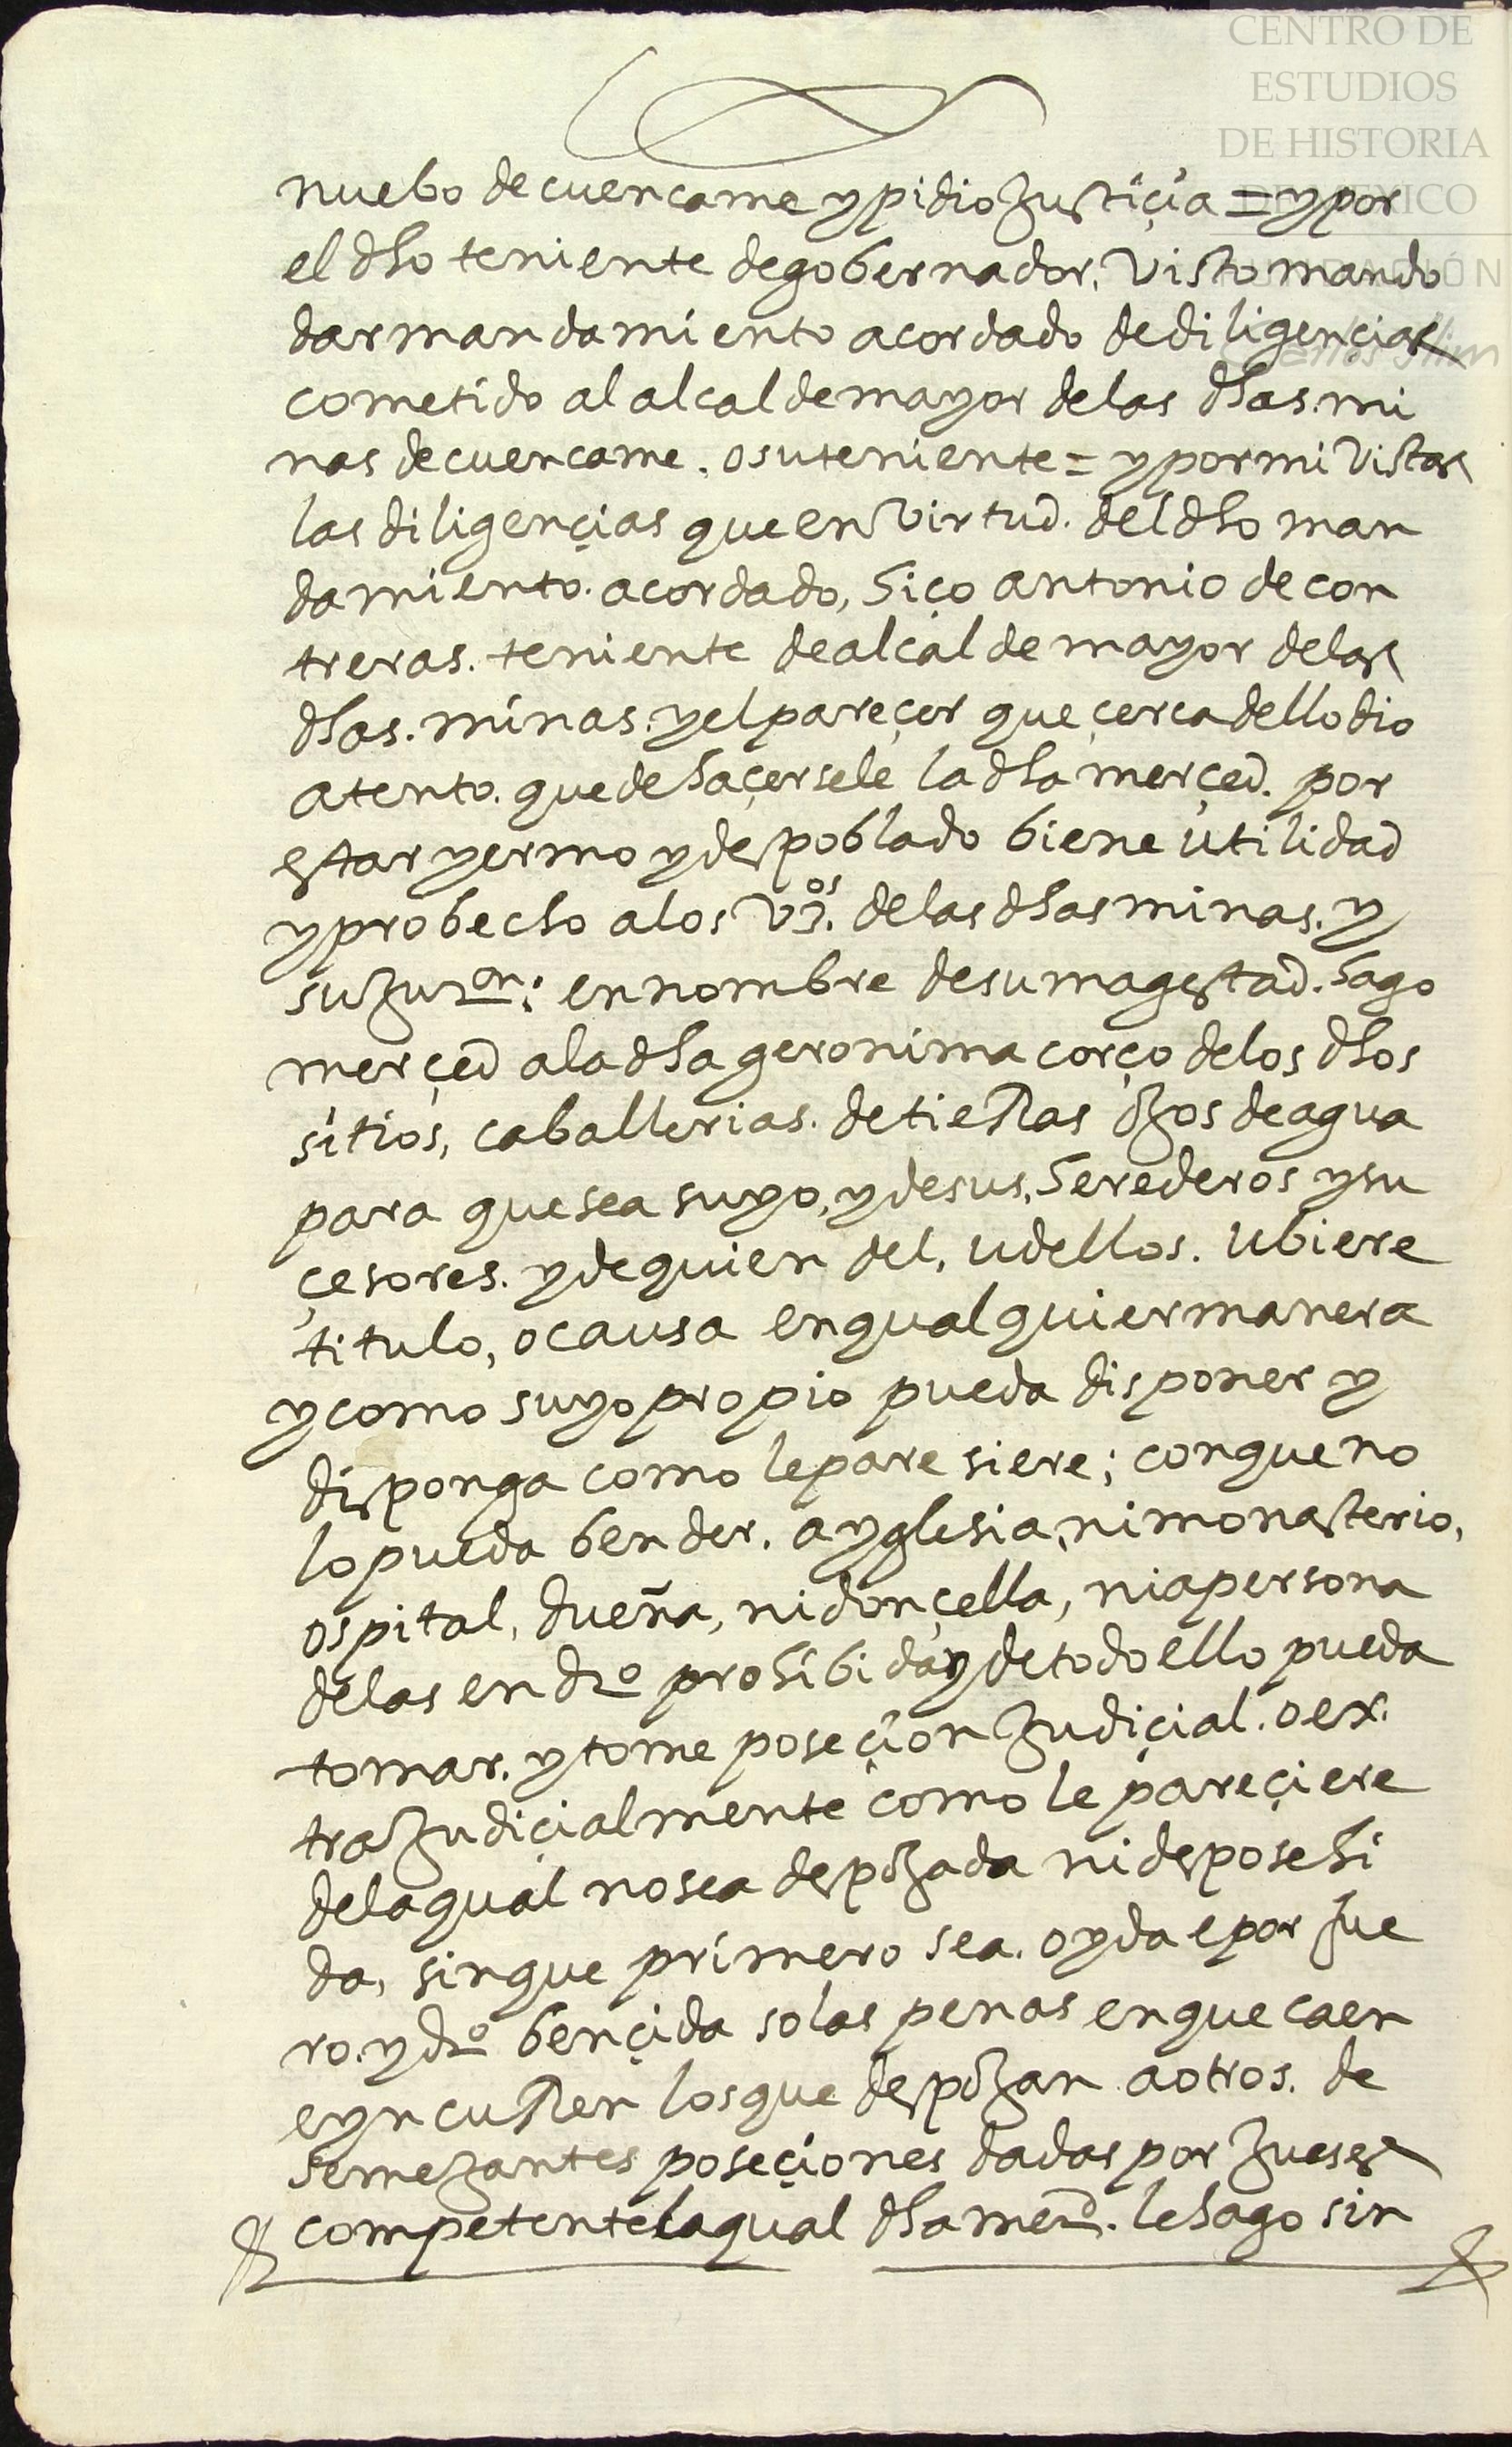 CENTRO DE
ESTUDIOS
DE HISTORIA
DE MEXICO
nuebo de cuencame y pidio Justiçia = y por
el dho teniente de gobernador, Visto mando
dar mandamiento acordado de diligencias
cometido al alcalde mayor de las dhas mi
nas de cuencame. o su teniente = y por mi Vistas
las diligençias que en Virtud. del dho man
damiento. acordado, hiço antonio de con
treras. teniente de alcalde mayor de las
dhas. minas. y el pareçer que çerca dello dio
atento. que de haçersele la dha merçed. por
estar yermo y despoblado biene utilidad
y probecho a los Vz.os de las dhas minas. y
su Jur.on: en nombre de su magestad. hago
merçed a la dha geronima corço de los dhos
sitios, caballerias. de tierras ojos de agua
para que sea suyo, y de sus, herederos y su
çesores. y de quien del, u dellos. Ubiere
titulo, o causa en qualquier manera
y como suyo propio pueda disponer y
disponga como le pare siere; con que no
lo pueda bender. a yglesia, ni monasterio,
ospital, dueña, ni donçella, ni a persona
de las en dro prohibida y de todo ello pueda
tomar. y tome poseçion Judiçial. o ex.
traJudiçialmente como le pareçiere
de la qual no sea despojada ni desposehi
da, sin que primero sea. oyda e por fue
ro. y dro bençida so las penas en que caen
e yncurren los que despojan a otros. de
semejantes poseçiones dadas por Jueses
competente la qual dha med. le hago sin